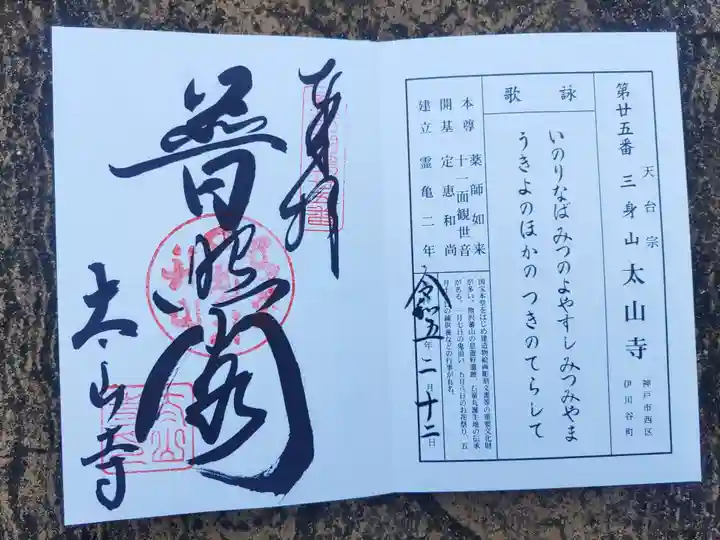 第廿五番 天台宗 三身山 太山寺 神戸市西区 伊川谷町
詠歌
いのりなば みつのよやすし みつみやま
うきよのほかの つきのてらして
本尊 薬師如来
十一面観世音
開基 定恵和尚
建立 霊亀二年
国宝本堂をはじめ建造物絵画彫刻文書等の重要文化財
令和五年二月十二日
奉拝
普照閣
太山寺